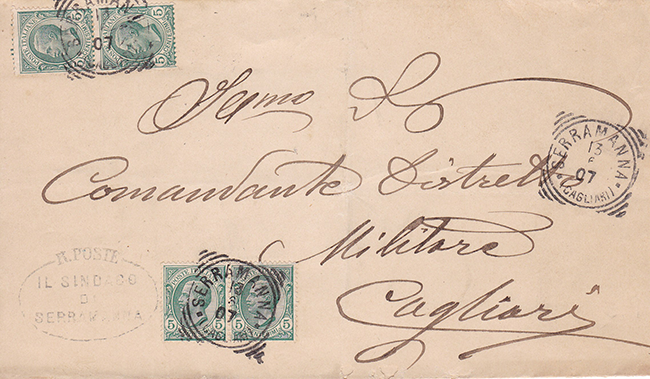 5 5
POSTE ITALIANE
07
Comandante Distrett
Militare
Cagliari
SERRAMANNA
13
6
07
(CAGLIARI)
R. POSTE
IL SINDACO
DI
SERRAMANNA
5 5
SERRAMANNA
13
07
(CAGLIARI)